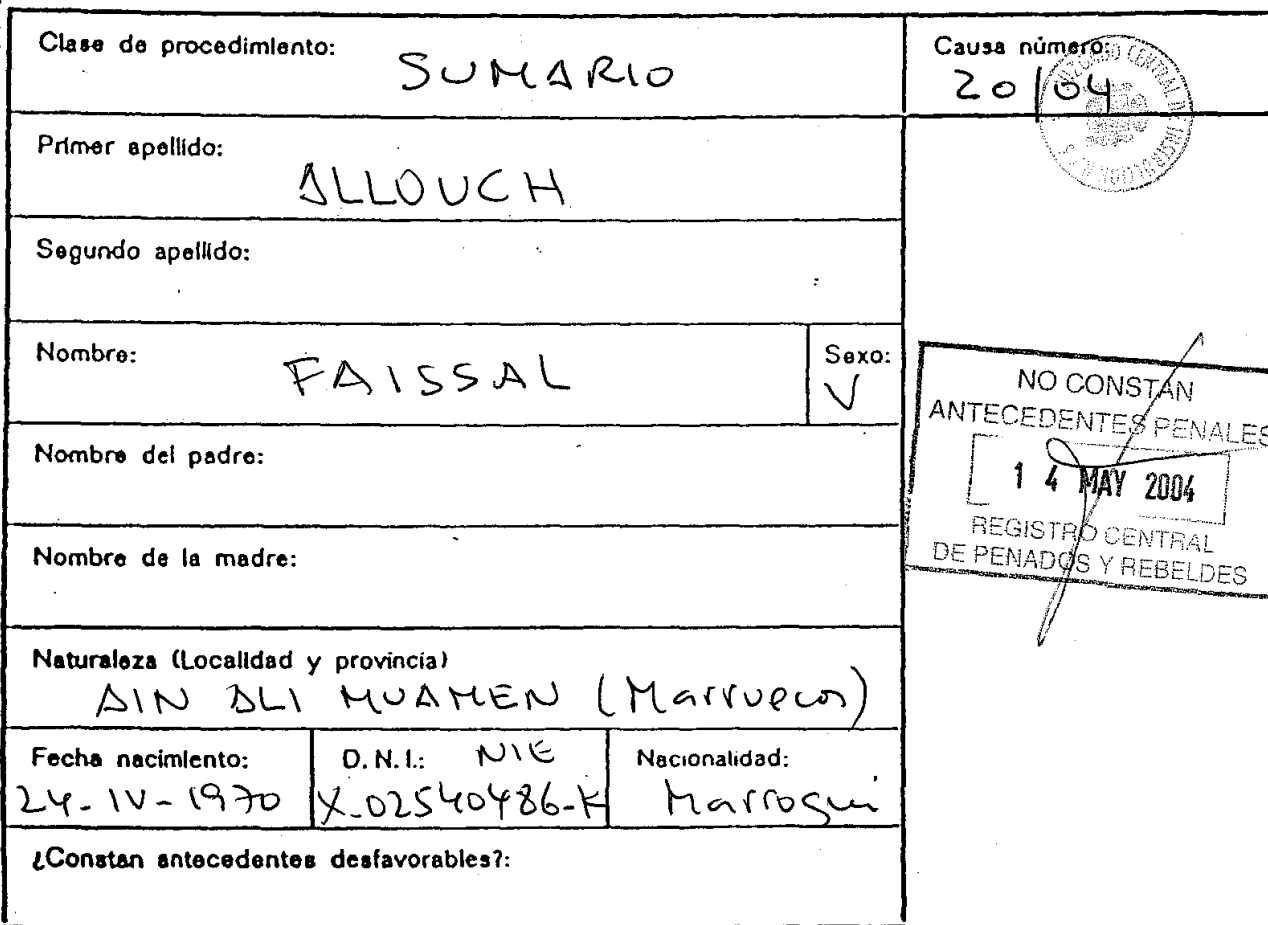 Clase de procedimiento: SUMARIO
Causa número: 20/04
JUZGADO CENTRAL DE INSTRUCCION N.
Primer apellido: ALLOUCH
Segundo apellido:
Nombre: FAISSAL
Sexo: V
NO CONSTAN
ANTECEDENTES PENALES
14 MAY 2004
REGISTRO CENTRAL
DE PENADOS Y REBELDES
Nombre del padre:
Nombre de la madre:
Naturaleza (Localidad y provincia)
AIN ALI MUAMEN (Marruecos)
Fecha nacimiento: 24-IV-1970
D.N.I.: NIE X-02540486-H
Nacionalidad: Marroqui
¿Constan antecedentes desfavorables?: